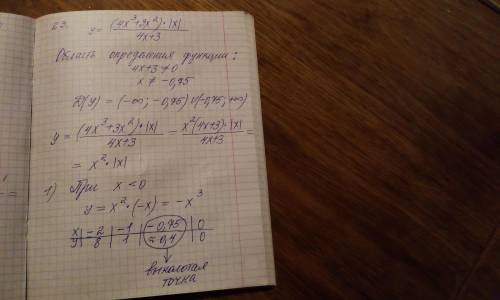 23. y = (4x³+3x²)·|x| / 4x+3
Область определения функции:
4x+3 ≠ 0
x ≠ -0,75
D(y) = (-∞; -0,75) ∪ (-0,75; +∞)
y = (4x³+3x²)·|x| / 4x+3 = x²(4x+3)·|x| / 4x+3 =
= x²·|x|
1) При x < 0
y = x²·(-x) = -x³
x | -2 | -1 | -0,75 | 0
y | 8 | 1 | ≈0,4 | 0
выколотая
точка